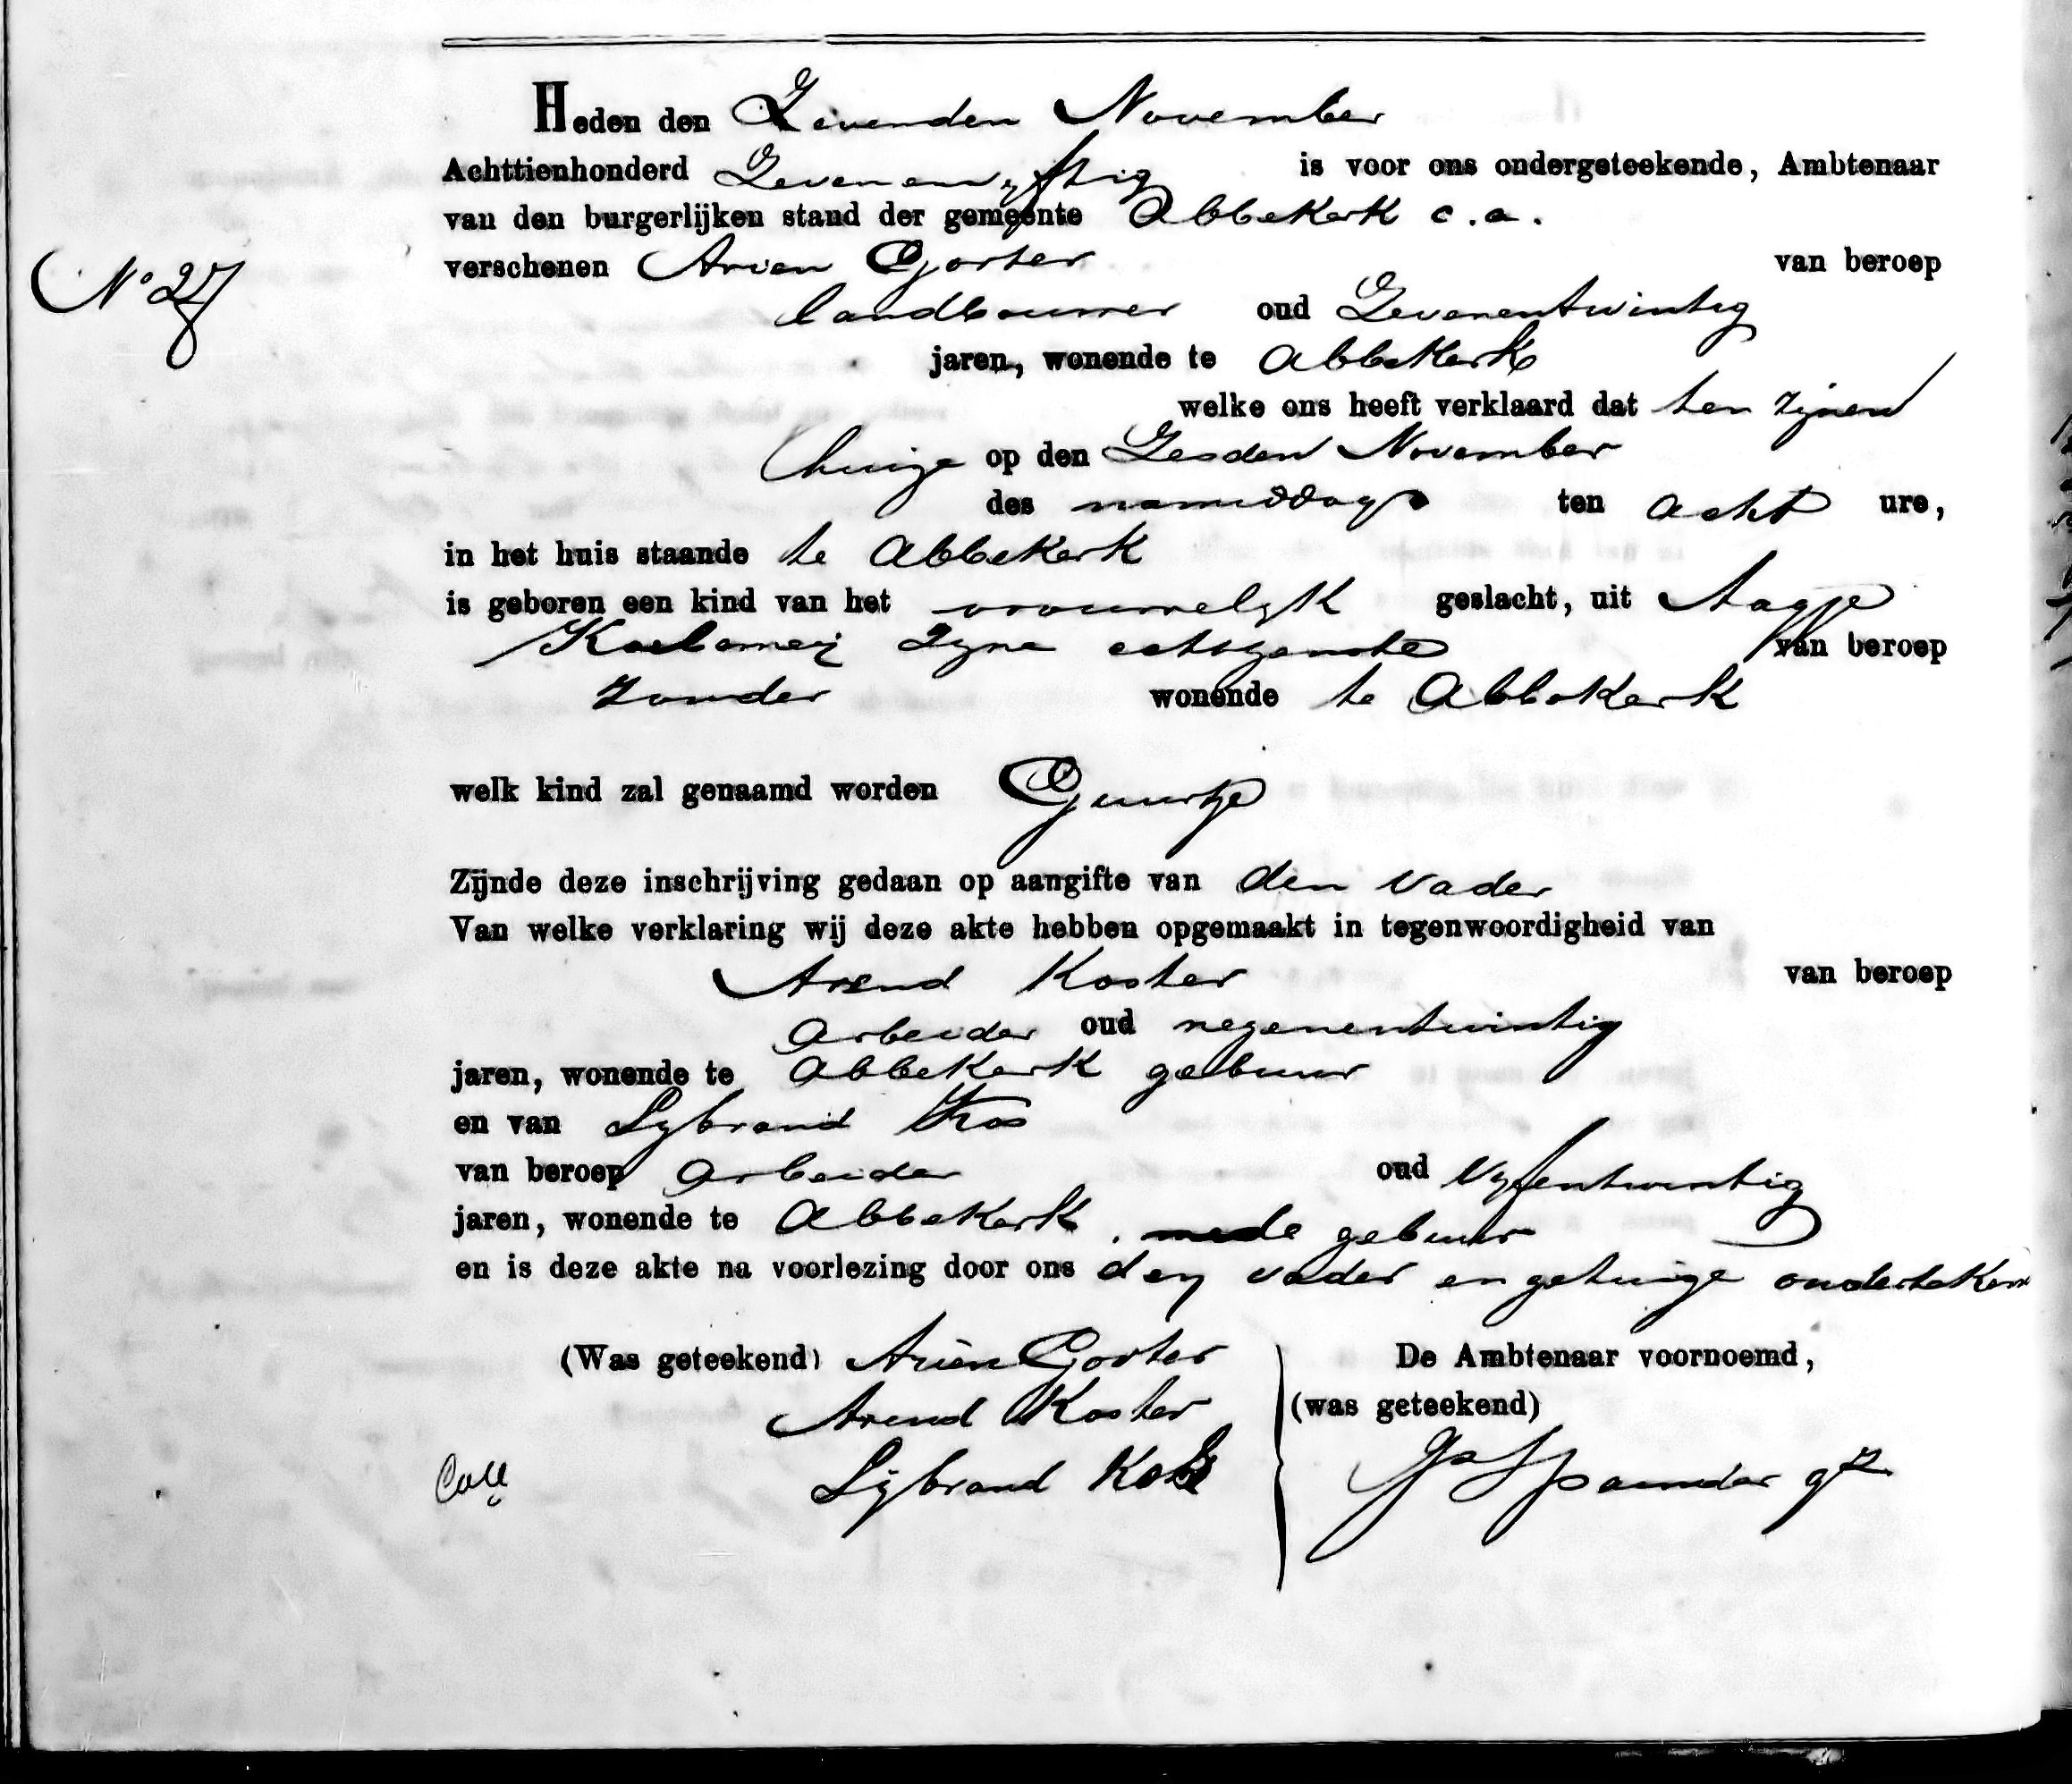 Heden den Zevenden November
Achttienhonderd Zevenenvyftig is voor ons ondergeteekende, Ambtenaar
van den burgerlijken stand der gemeente Abbekerk c.a.
No 27
verschenen Arien Gorter van beroep
landbouwer oud Zevenentwintig
jaren, wonende te Abbekerk
welke ons heeft verklaard dat ten zynen
huize op den Zesden November
des namiddags ten acht ure,
in het huis staande te Abbekerk
is geboren een kind van het vrouwelyk geslacht, uit Aagje
Koelemeij zyne echtgenote van beroep
zonder wonende te Abbekerk
welk kind zal genaamd worden Guurtje
Zijnde deze inschrijving gedaan op aangifte van den vader
Van welke verklaring wij deze akte hebben opgemaakt in tegenwoordigheid van
Arend Koster van beroep
arbeider oud negenentwintig
jaren, wonende te Abbekerk gebuur
en van Sybrand Kos
van beroep arbeider oud vyfentwintig
jaren, wonende te Abbekerk, mede gebuur
en is deze akte na voorlezing door ons den vader en getuige ondertekend
(Was geteekend) Arien Gorter De Ambtenaar voornoemd,
Arend Koster (was geteekend)
Coll Sijbrand Kos Spaander gz